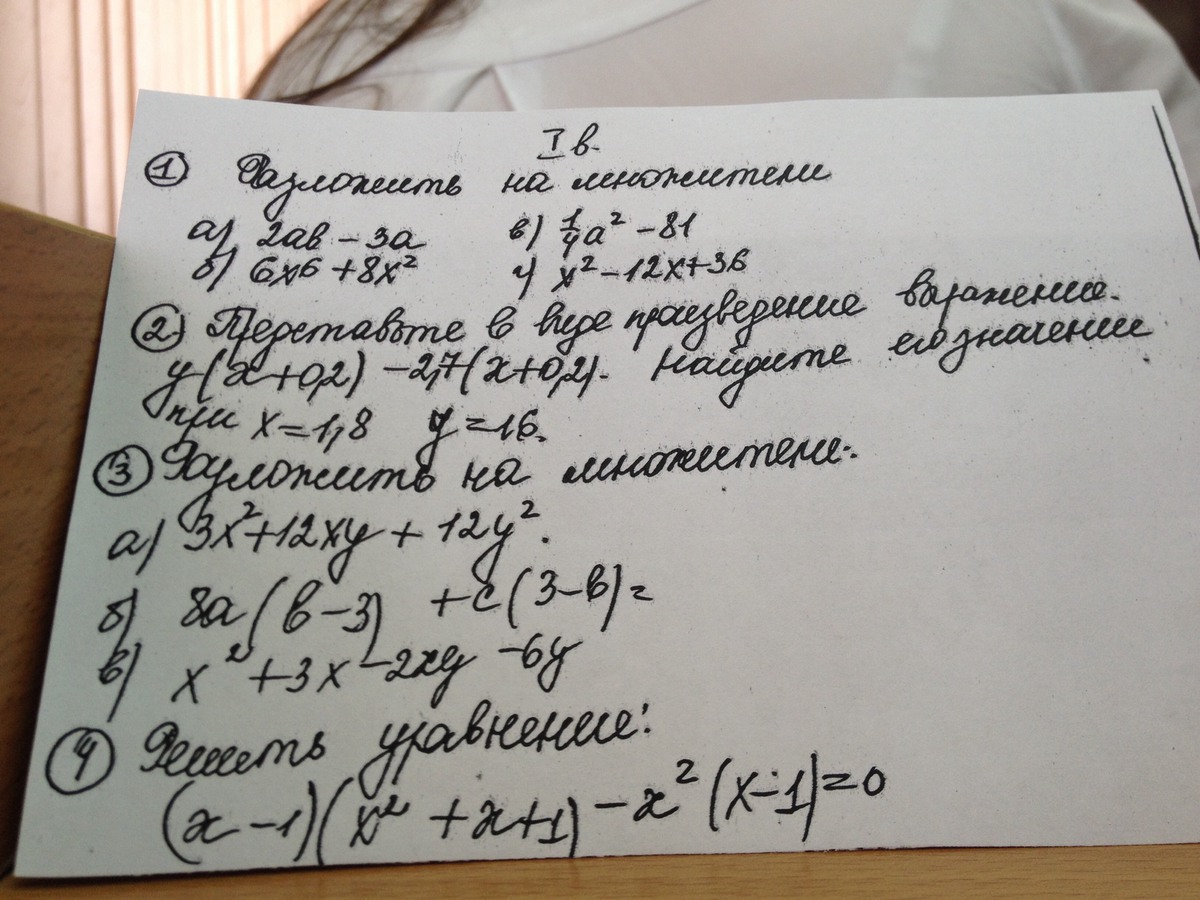 I в.
① Разложить на множители
а) 2ab – 3a в) 1/4 a² – 81
б) 6x⁶ + 8x² г) x² – 12x + 36
② Представьте в виде произведение выражение.
y(x+0,2) – 2,7(x+0,2). Найдите его значение
при x = 1,8 y = 16.
③ Разложить на множители.
а) 3x² + 12xy + 12y².
б) 8a(b – 3) + c(3 – b) =
в) x² + 3x – 2xy – 6y
④ Решить уравнение:
(x – 1)(x² + x + 1) – x²(x – 1) = 0